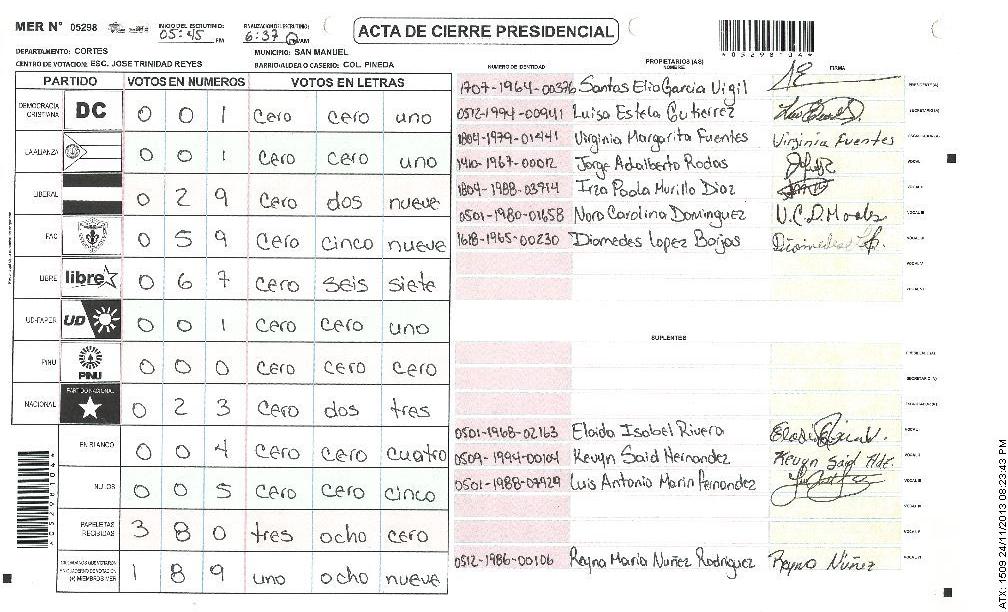 MER N° 05298
INICIO DEL ESCRUTINIO: 05:45 PM
FINALIZACION DEL ESCRUTINIO: 6:37 AM
ACTA DE CIERRE PRESIDENCIAL
*05298104*
DEPARTAMENTO: CORTES
MUNICIPIO: SAN MANUEL
CENTRO DE VOTACION: ESC. JOSE TRINIDAD REYES
BARRIO/ALDEA O CASERIO: COL. PINEDA
PARTIDO VOTOS EN NUMEROS VOTOS EN LETRAS
DEMOCRACIA CRISTIANA DC 0 0 1 cero cero uno
LA ALIANZA 0 0 1 cero cero uno
LIBERAL 0 2 9 cero dos nueve
PAC 0 5 9 cero cinco nueve
LIBRE libre 0 6 7 cero seis siete
UD-FAPER UD 0 0 1 cero cero uno
PINU PINU 0 0 0 cero cero cero
NACIONAL PARTIDO NACIONAL 0 2 3 cero dos tres
EN BLANCO 0 0 4 cero cero cuatro
NULOS 0 0 5 cero cero cinco
PAPELETAS RECIBIDAS 3 8 0 tres ocho cero
CIUDADANOS QUE VOTARON
(+) MIEMBROS MER 1 8 9 uno ocho nueve
NUMERO DE IDENTIDAD PROPIETARIOS (AS) NOMBRE FIRMA
1707-1964-00376 Santos Elio Garcia Vigil PRESIDENTE(A)
0512-1994-00941 Luisa Estela Gutierrez SECRETARIO(A)
1804-1979-01441 Virginia Margarita Fuentes Virginia Fuentes
1410-1967-00012 Jorge Adalberto Rodas VOCAL I
1804-1988-03914 Irza Paola Murillo Diaz VOCAL II
0501-1980-01658 Nora Carolina Dominguez VOCAL III
1618-1965-00230 Diomedes Lopez Borjas Diomedes
VOCAL V
SUPLENTES
PRESIDENTE(A)
SECRETARIO(A)
0501-1968-02163 Eloida Isabel Rivera VOCAL I
0509-1994-00104 Kevyn Said Hernandez Kevyn Said Hdz. VOCAL II
0501-1988-07929 Luis Antonio Marin Fernandez VOCAL III
0512-1986-00106 Reyna Maria Nuñez Rodriguez Reyna Nuñez
*05298104*
ATX: 1509 24/11/2013 08:23:43 PM